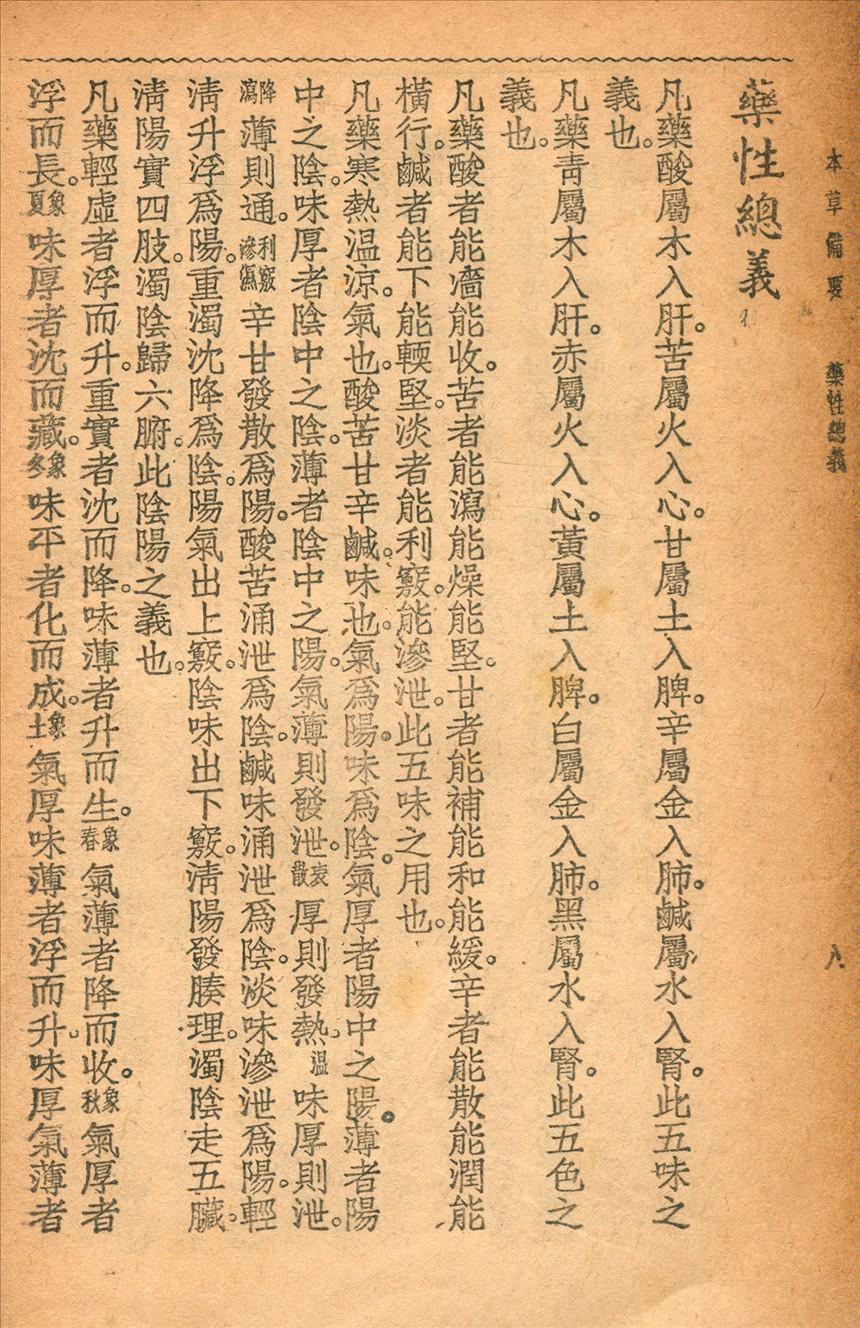 本草備要　藥性總義　八
藥性總義
凡藥酸屬木入肝。苦屬火入心。甘屬土入脾。辛屬金入肺。鹹屬水入腎。此五味之
義也。
凡藥靑屬木入肝。赤屬火入心。黃屬土入脾。白屬金入肺。黑屬水入腎。此五色之
義也。
凡藥酸者能濇能收。苦者能瀉能燥能堅。甘者能補能和能緩。辛者能散能潤能
橫行。鹹者能下能輭堅。淡者能利竅。能滲泄。此五味之用也。
凡藥寒熱温涼。氣也。酸苦甘辛鹹。味也。氣爲陽。味爲陰。氣厚者陽中之陽。薄者陽
中之陰。味厚者陰中之陰。薄者陰中之陽。氣薄則發泄。表散厚則發熱。温味厚則泄。
降瀉薄則通。利竅滲濕辛甘發散爲陽。酸苦涌泄爲陰。鹹味涌泄爲陰。淡味滲泄爲陽。輕
淸升浮爲陽。重濁沈降爲陰。陽氣出上竅。陰味出下竅。淸陽發腠理。濁陰走五臟。
淸陽實四肢。濁陰歸六腑。此陰陽之義也。
凡藥輕虛者浮而升。重實者沈而降。味薄者升而生。象春氣薄者降而收。象秋氣厚者
浮而長。象夏味厚者沈而藏。象冬味平者化而成。象土氣厚味薄者浮而升。味厚氣薄者